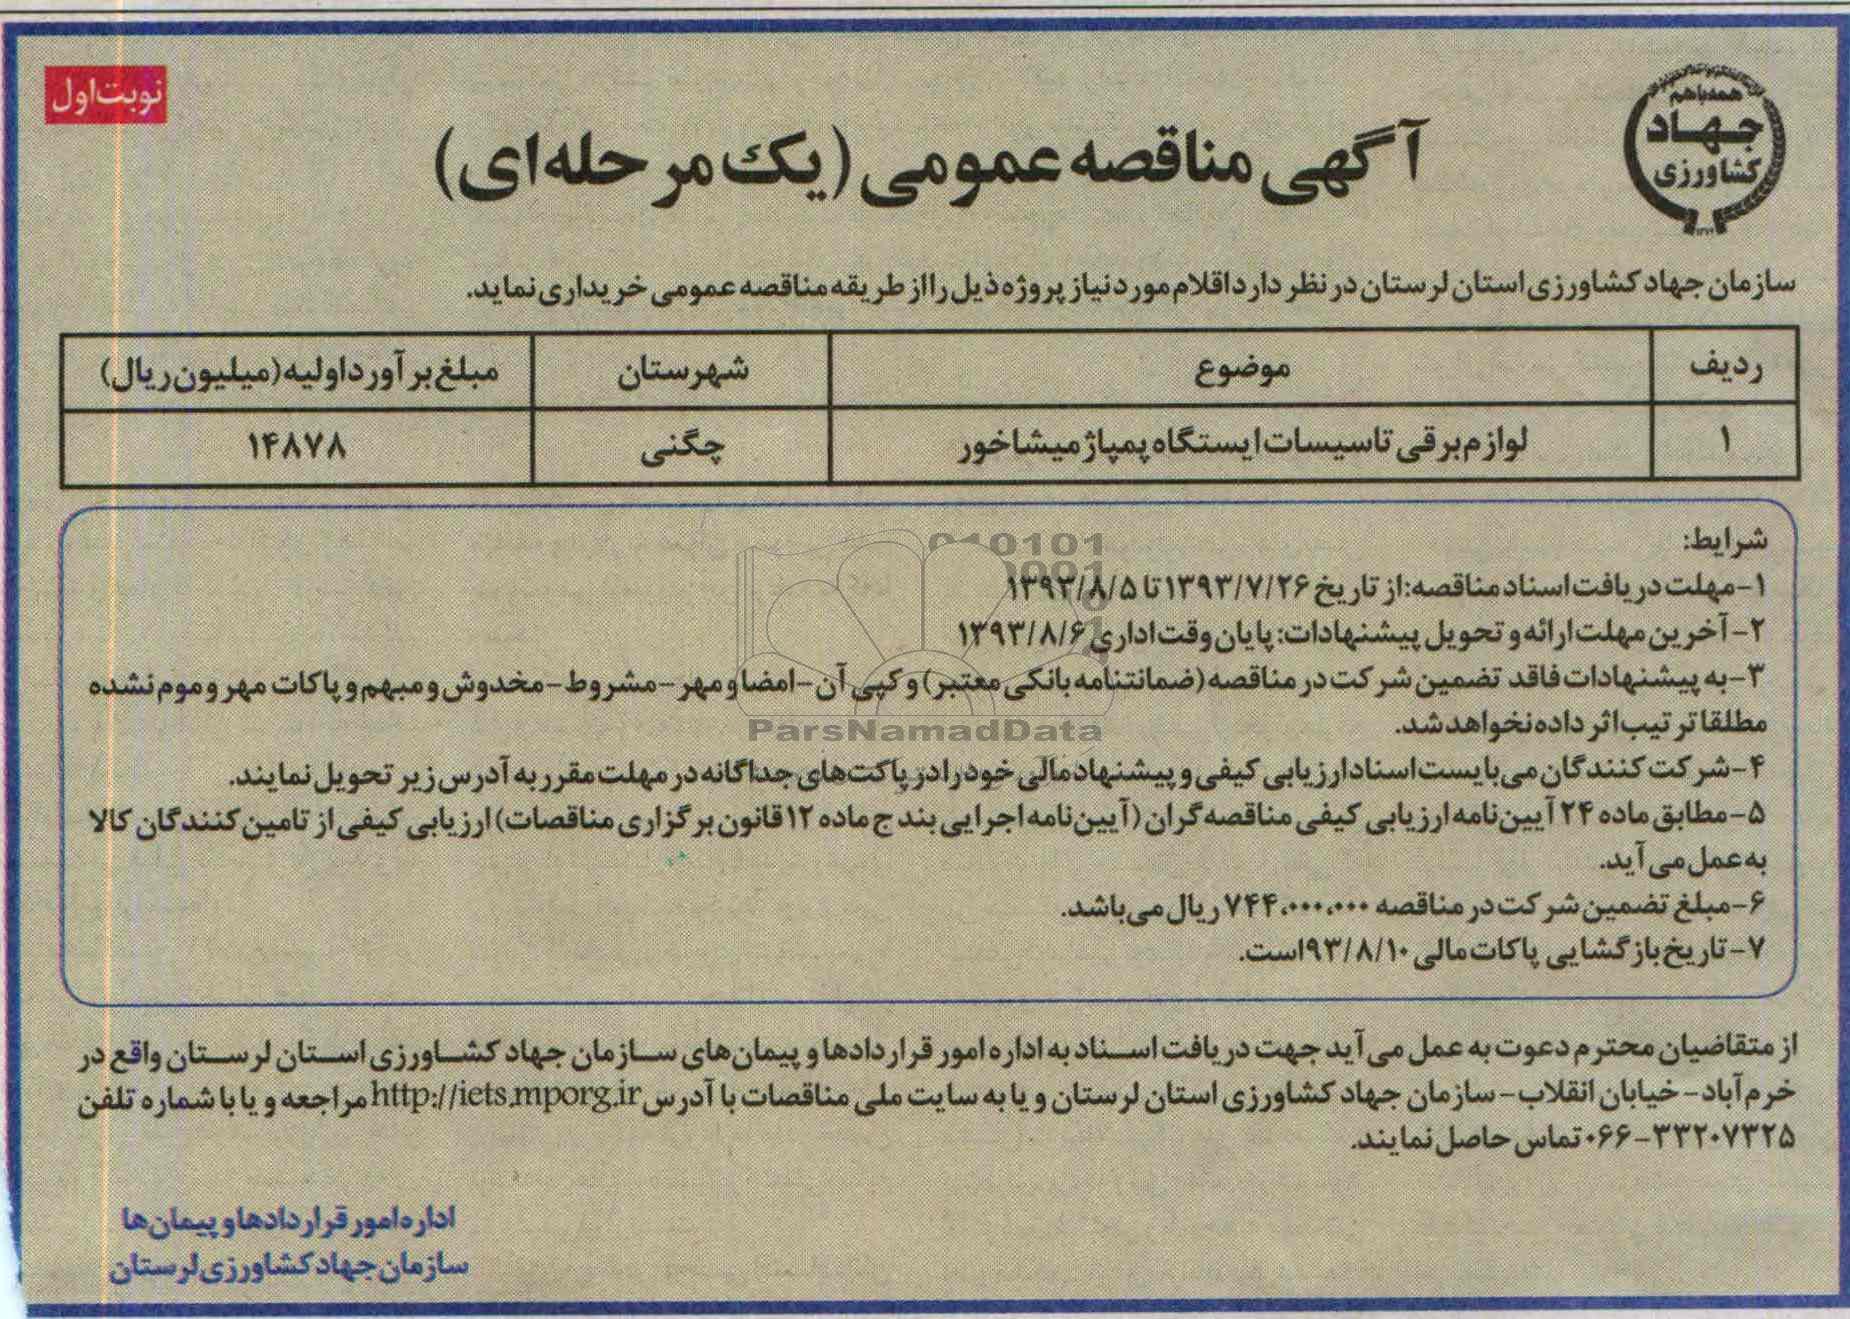 نوبت اول
همه با هم
جهاد
کشاورزی
آگهی مناقصه عمومی (یک مرحله‌ای)
سازمان جهاد کشاورزی استان لرستان در نظر دارد اقلام مورد نیاز پروژه ذیل را از طریقه مناقصه عمومی خریداری نماید.
ردیف موضوع شهرستان مبلغ برآورد اولیه (میلیون ریال)
۱ لوازم برقی تاسیسات ایستگاه پمپاژ میشاخور چگنی ۱۴۸۷۸
شرایط:
۱-مهلت دریافت اسناد مناقصه: از تاریخ ۱۳۹۳/۷/۲۶ تا ۱۳۹۳/۸/۵
۲-آخرین مهلت ارائه و تحویل پیشنهادات: پایان وقت اداری ۱۳۹۳/۸/۶
۳-به پیشنهادات فاقد تضمین شرکت در مناقصه (ضمانتنامه بانکی معتبر) و کپی آن-امضا و مهر-مشروط-مخدوش و مبهم و پاکات مهر و موم نشده
مطلقا ترتیب اثر داده نخواهد شد.
۴-شرکت کنندگان می‌بایست اسناد ارزیابی کیفی و پیشنهاد مالی خود را در پاکت‌های جداگانه در مهلت مقرر به آدرس زیر تحویل نمایند.
۵-مطابق ماده ۲۴ آیین‌نامه ارزیابی کیفی مناقصه‌گران (آیین‌نامه اجرایی بند ج ماده ۱۲ قانون برگزاری مناقصات) ارزیابی کیفی از تامین کنندگان کالا
به عمل می‌آید.
۶-مبلغ تضمین شرکت در مناقصه ۷۴۴،۰۰۰،۰۰۰ ریال می‌باشد.
۷-تاریخ بازگشایی پاکات مالی ۹۳/۸/۱۰ است.
010101
ParsNamadData
از متقاضیان محترم دعوت به عمل می‌آید جهت دریافت اسناد به اداره امور قراردادها و پیمان‌های سازمان جهاد کشاورزی استان لرستان واقع در
خرم‌آباد-خیابان انقلاب-سازمان جهاد کشاورزی استان لرستان و یا به سایت ملی مناقصات با آدرس http://iets.mporg.ir مراجعه و یا با شماره تلفن
۰۶۶-۳۳۲۰۷۳۲۵ تماس حاصل نمایند.
اداره امور قراردادها و پیمان‌ها
سازمان جهاد کشاورزی لرستان